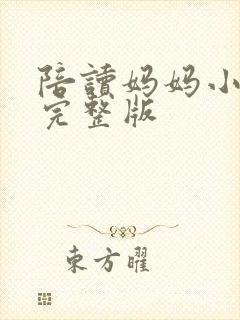 陪讀妈妈小
完整版
東方曜